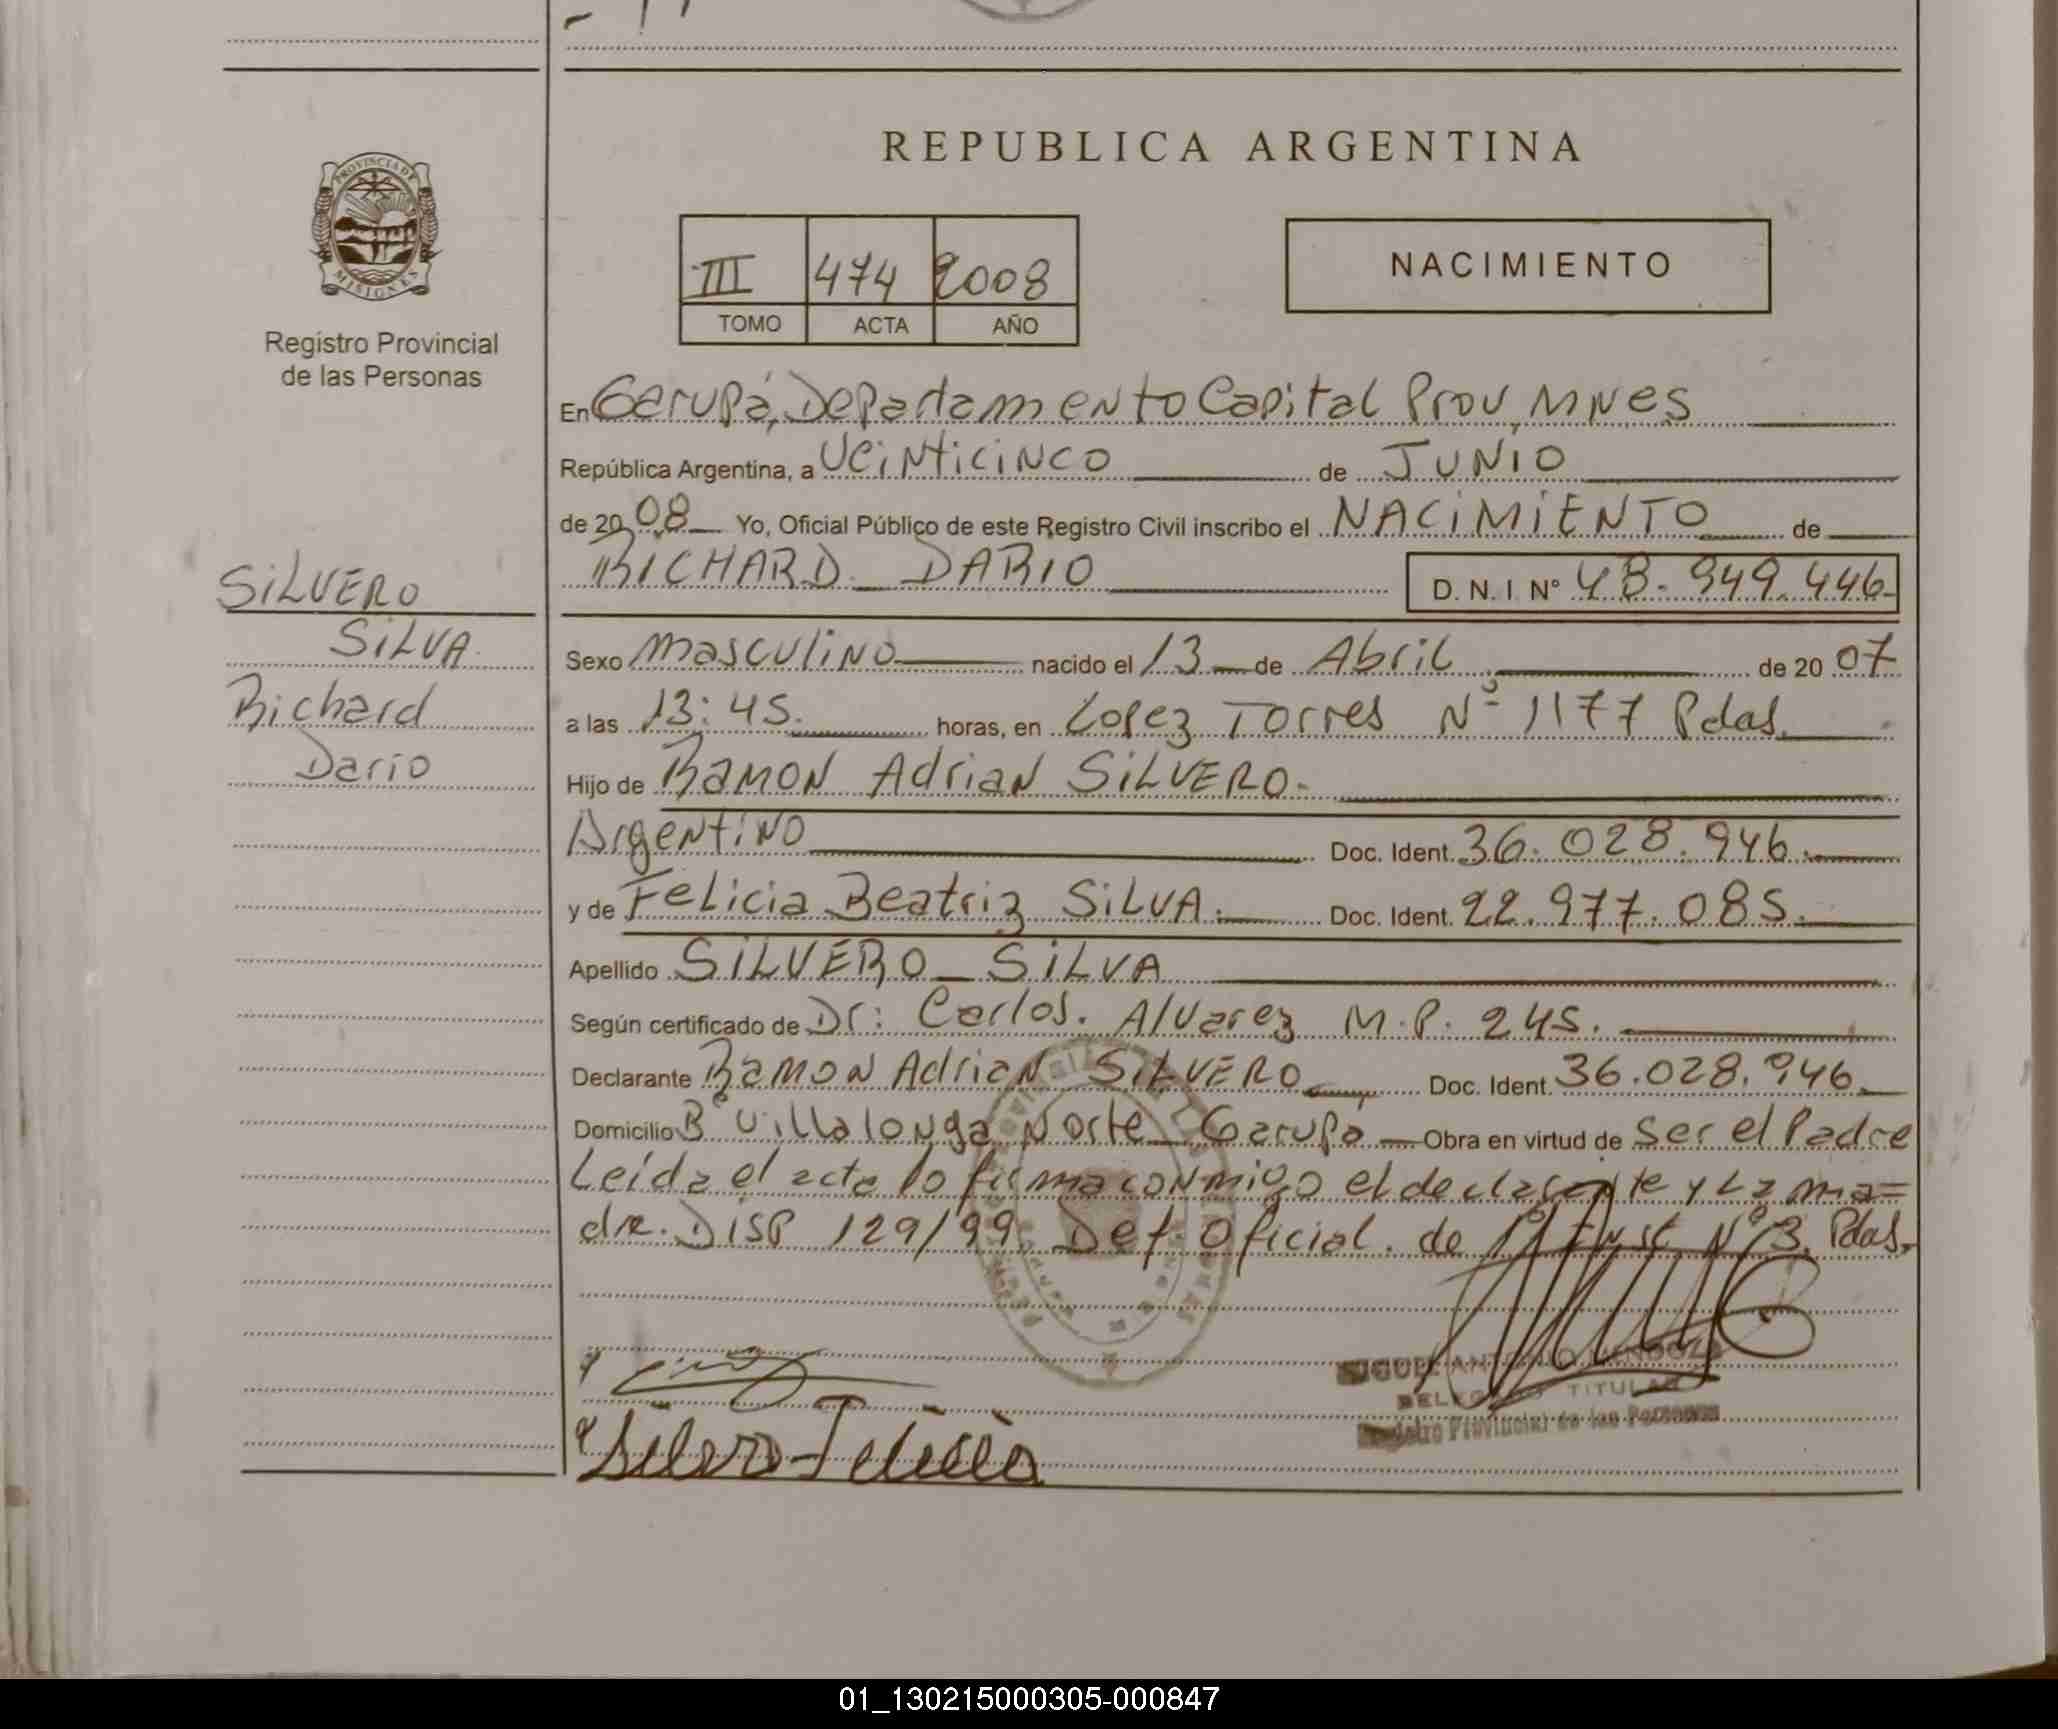 REPUBLICA ARGENTINA
PROVINCIA DE
MISIONES
Registro Provincial
de las Personas
III 474 2008
TOMO ACTA AÑO
NACIMIENTO
En Garupá, Departamento Capital Prov, MNES
República Argentina, a Veinticinco de JUNIO
de 2008 Yo, Oficial Público de este Registro Civil inscribo el NACIMIENTO de
RICHARD DARIO D. N. I. N° 48.949.446
SILVERO
SILVA
Richard
Dario
Sexo masculino nacido el 13 de Abril de 2007
a las 13:45. horas, en Lopez Torres N° 1177 Pdas.
Hijo de Ramon Adrian SILVERO.
Argentino Doc. Ident. 36.028.946.
y de Felicia Beatriz SILVA. Doc. Ident. 22.977.085.
Apellido SILVERO SILVA
Según certificado de Dr: Carlos. Alvarez M.P. 245.
Declarante Ramon Adrian SILVERO Doc. Ident. 36.028.946.
Domicilio B° Villalonga Norte Garupá Obra en virtud de ser el Padre
Leida el acta lo firma conmigo el declarante y La ma=
dre. DISP 129/99. Def. Oficial. de Inst. N° 3. Pdas.
MIGUEL ANTONIO MENDOZA
DELEGADO TITULAR
Registro Provincial de las Personas
01_130215000305-000847